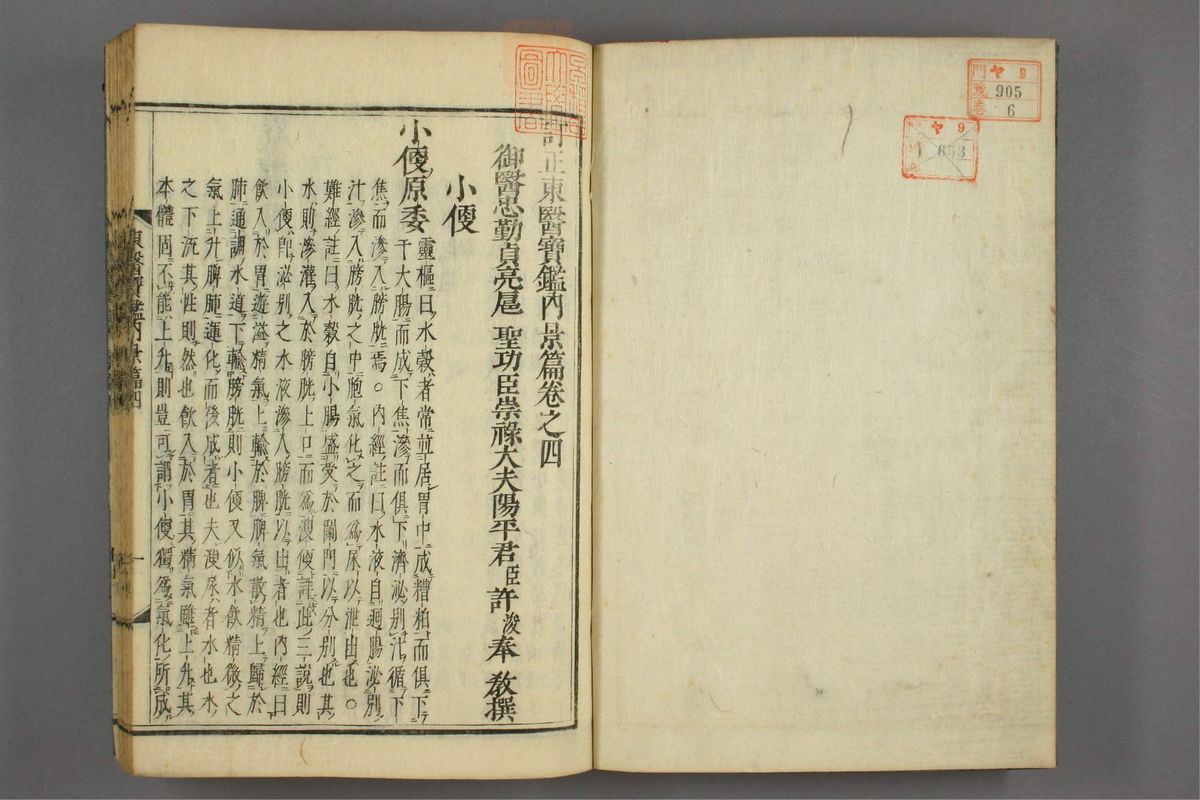 門 ヤ 9
號 905
卷 6
ヤ 9
653
訂正東醫寶鑑內景篇卷之四
御醫忠勤貞亮扈 聖功臣崇祿大夫陽平君臣許浚奉 敎撰
小便
小便原委 靈樞曰水穀者常並居胃中成糟粕而俱下
于大腸而成下焦滲而俱下濟泌別汁循下
焦而滲入膀胱焉○內經註曰水液自迴腸泌別
汁滲入膀胱之中胞氣化之而爲尿以泄出也○
難經註曰水穀自小腸盛受於闌門以分別也其
水則滲灌入於膀胱上口而爲溲便詳此三說則
小便卽泌別之水液滲入膀胱以出者也內經曰
飮入於胃遊溢精氣上輸於脾脾氣散精上歸於
肺通調水道下輸膀胱則小便又似水飮精微之
氣上升脾肺運化而後成者也夫溲尿者水也水
之下流其性則然也飮入於胃其精氣雖上升其
本體固不能上升則豈可謂小便獨爲氣化所成
東醫寶鑑內景篇四 一